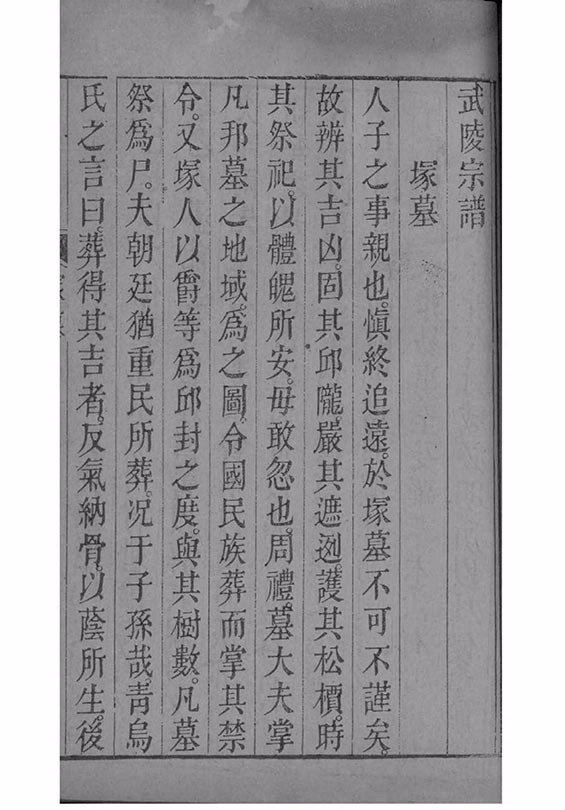 武陵宗譜
塚墓
人子之事親也。愼終追遠。於塚墓不可不謹矣。
故辨其吉凶。固其邱隴。嚴其遮迾。護其松檟。時
其祭祀。以體魄所安。毋敢忽也。周禮。墓大夫掌
凡邦墓之地域。爲之圖。令國民族葬而掌其禁
令。又塚人以爵等爲邱封之度。與其樹數。凡墓
祭爲尸。夫朝廷猶重民所葬。况于子孫哉。靑烏
氏之言曰。葬得其吉者。反氣納骨。以蔭所生。後